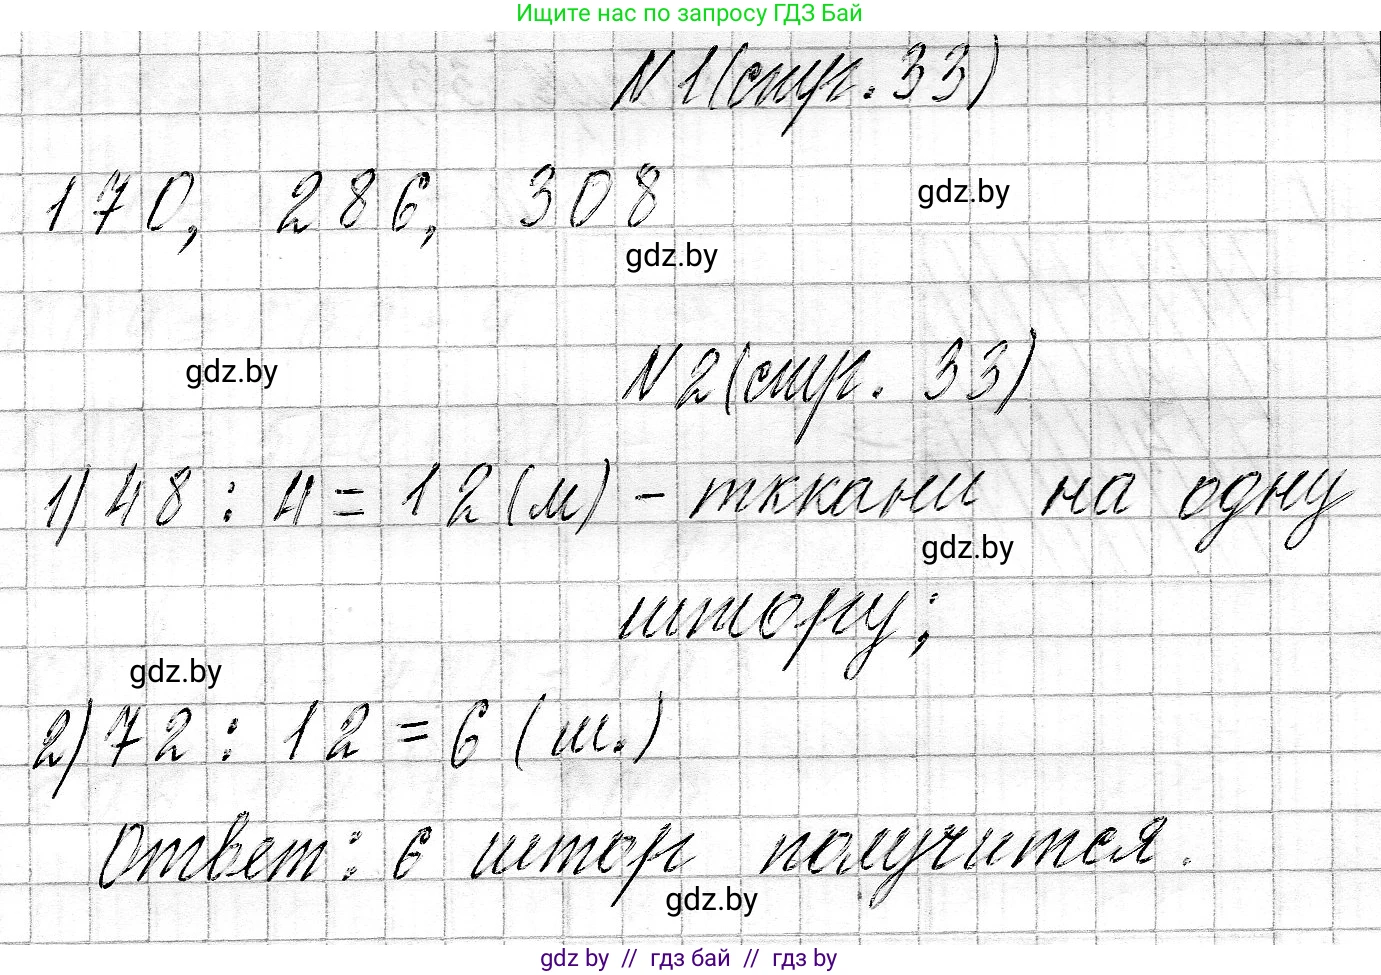 Ищите нас по запросу ГДЗ Бай
N 1 (стр. 33)
170, 286, 308
gdz.by
gdz.by
N 2 (стр. 33)
gdz.by
1) 48 : 4 = 12 (м) – тккани на одну
gdz.by
штору;
gdz.by
2) 72 : 12 = 6 (ш.)
Ответ: 6 штор получится.
gdz.by
gdz by // гдз бай // гдз by